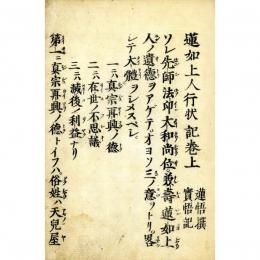 蓮如上人行状記巻上
蓮悟撰
實悟記
ソレ先師法印大和尚位兼壽蓮如上
人ノ遺德ヲアケテオヨソ三ノ意ヲトリ畧
シテ大體ヲシメスヘシ
一ニハ真宗再興ノ德
二ニハ在世ノ不思議
三ニハ滅後ノ利益ナリ
第一ニ真宗再興ノ德トイフハ俗姓ハ天兒屋